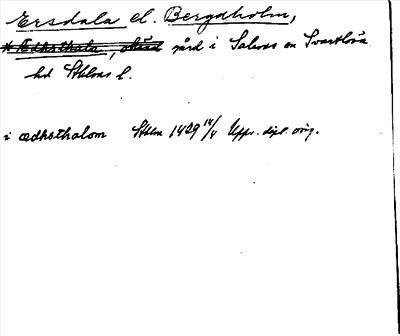 Ersdala el. Bergaholm,
* Ædhsthala, okänd gård i Salems sn Svartlösa
hd Sthlms l.
i ædhsthalom Sthlm 1409 14/4 Upps. dipl. orig.